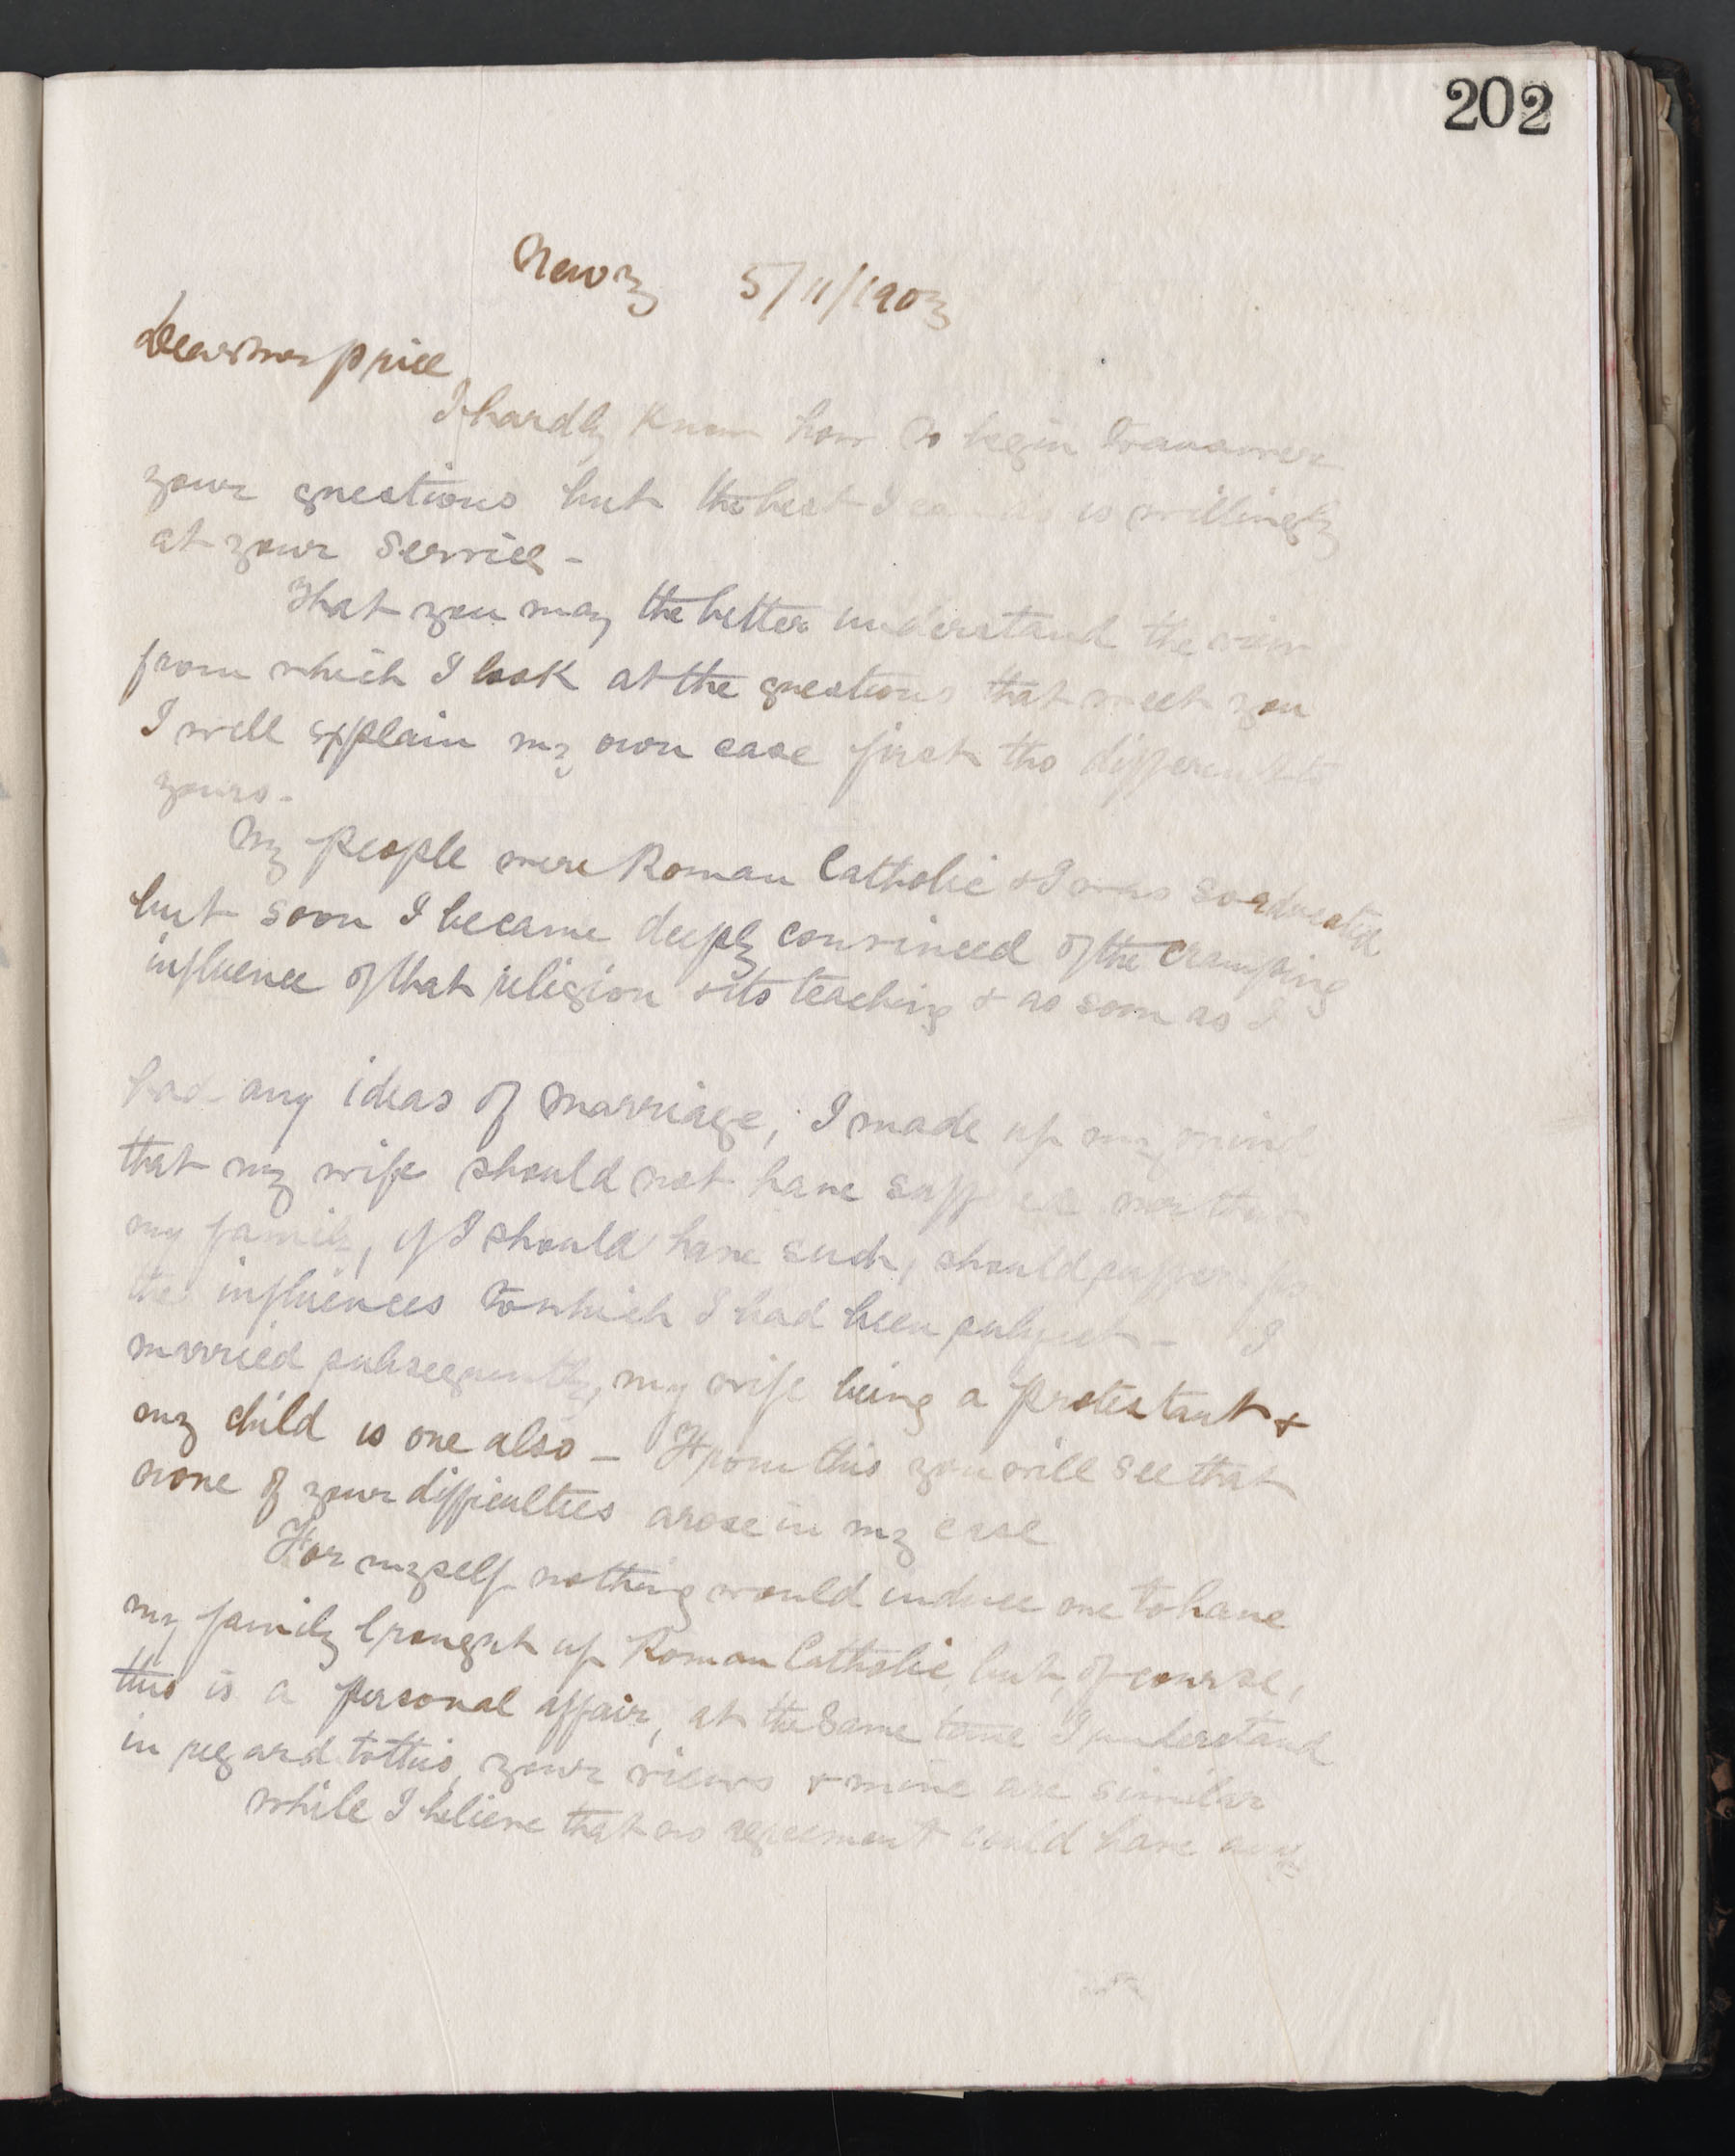 202
Newry 5/11/1903
Dear Mr Price
I hardly know how to begin to answer
your questions but the best I can do is willingly
at your service -
That you may the better understand the view
from which I look at the questions that meet you
I will explain my own case first tho different to
yours -
My people were Roman Catholic & I was so educated
but soon I became deeply convinced of the cramping
influence of that religion & its teaching & as soon as I
had any ideas of marriage, I made up my mind
that my wife should not have suffered nor that
my family, if I should have such, should suffer
the influences to which I had been subject - I
married subsequently, my wife being a protestant &
my child is one also - From this you will see that
none of your difficulties arose in my case
For myself nothing would induce me to have
my family brought up Roman Catholic, but, of course,
this is a personal affair, at the same time I understand
in regard to this, your views & mine are similar
While I believe that no agreement could have any